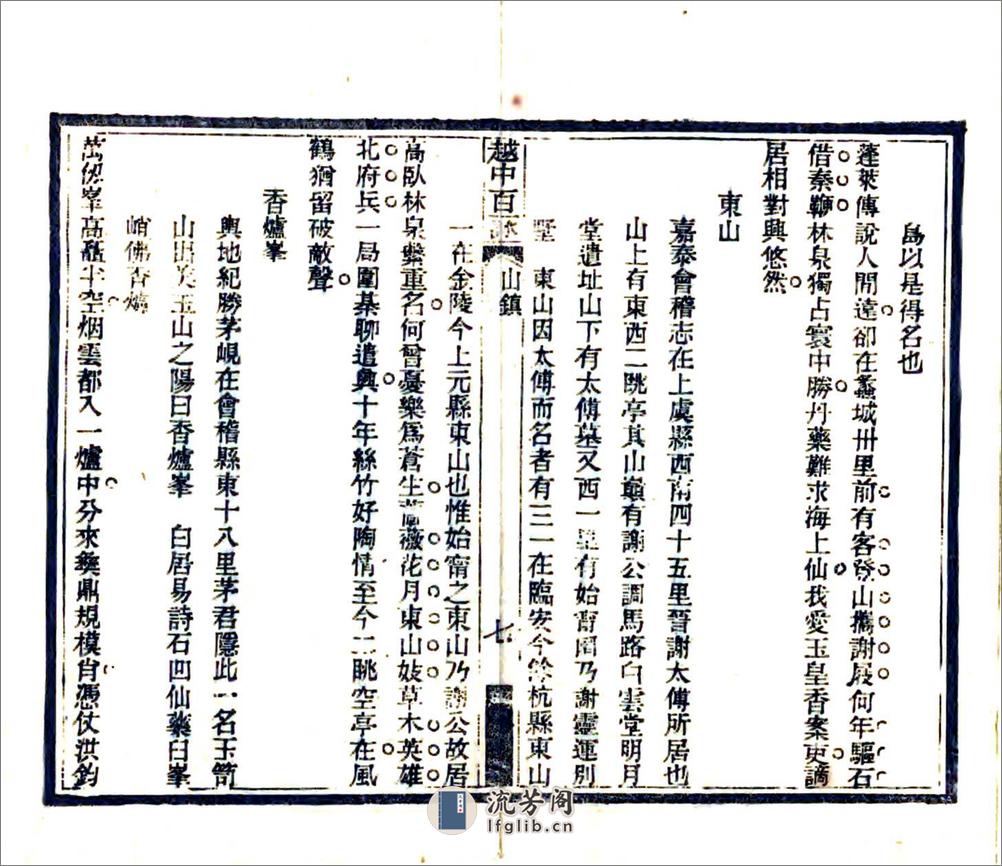 為以是得名也
蓬萊傳說人間遠卻在蠡城卅里前有客登山攜謝屐何年驅石
借秦鞭林泉獨占寰中勝丹藥難求海上仙我愛玉皇香案吏謫
居相對興悠然
東山
嘉泰會稽志在上虞縣西南四十五里晉謝太傅所居也
山上有東西二眺亭其山巔有謝公調馬路白雲堂明月
堂遺址山下有太傅墓又西一里有始甯園乃謝靈運別
墅 東山因太傅而名者有三一在臨安今餘杭縣東山
越中百詠 山鎮 七
一在金陵今上元縣東山也惟始甯之東山乃謝公故居
高臥林泉繫重名何曾憂樂為蒼生薔薇花月東山妓草木英雄
北府兵一局圍棊聊遣興十年絲竹好陶情至今二眺空亭在風
鶴猶留破敵聲
香爐峯
輿地紀勝茅峴在會稽縣東十八里茅君隱此一名玉笥
山出美玉山之陽曰香爐峯 白居易詩石凹仙藥臼峯
峭佛香爐
萬仞峯高矗半空烟雲都入一爐中分來彝鼎規模肖憑仗洪鈞
流芳阁
lfglib.cn